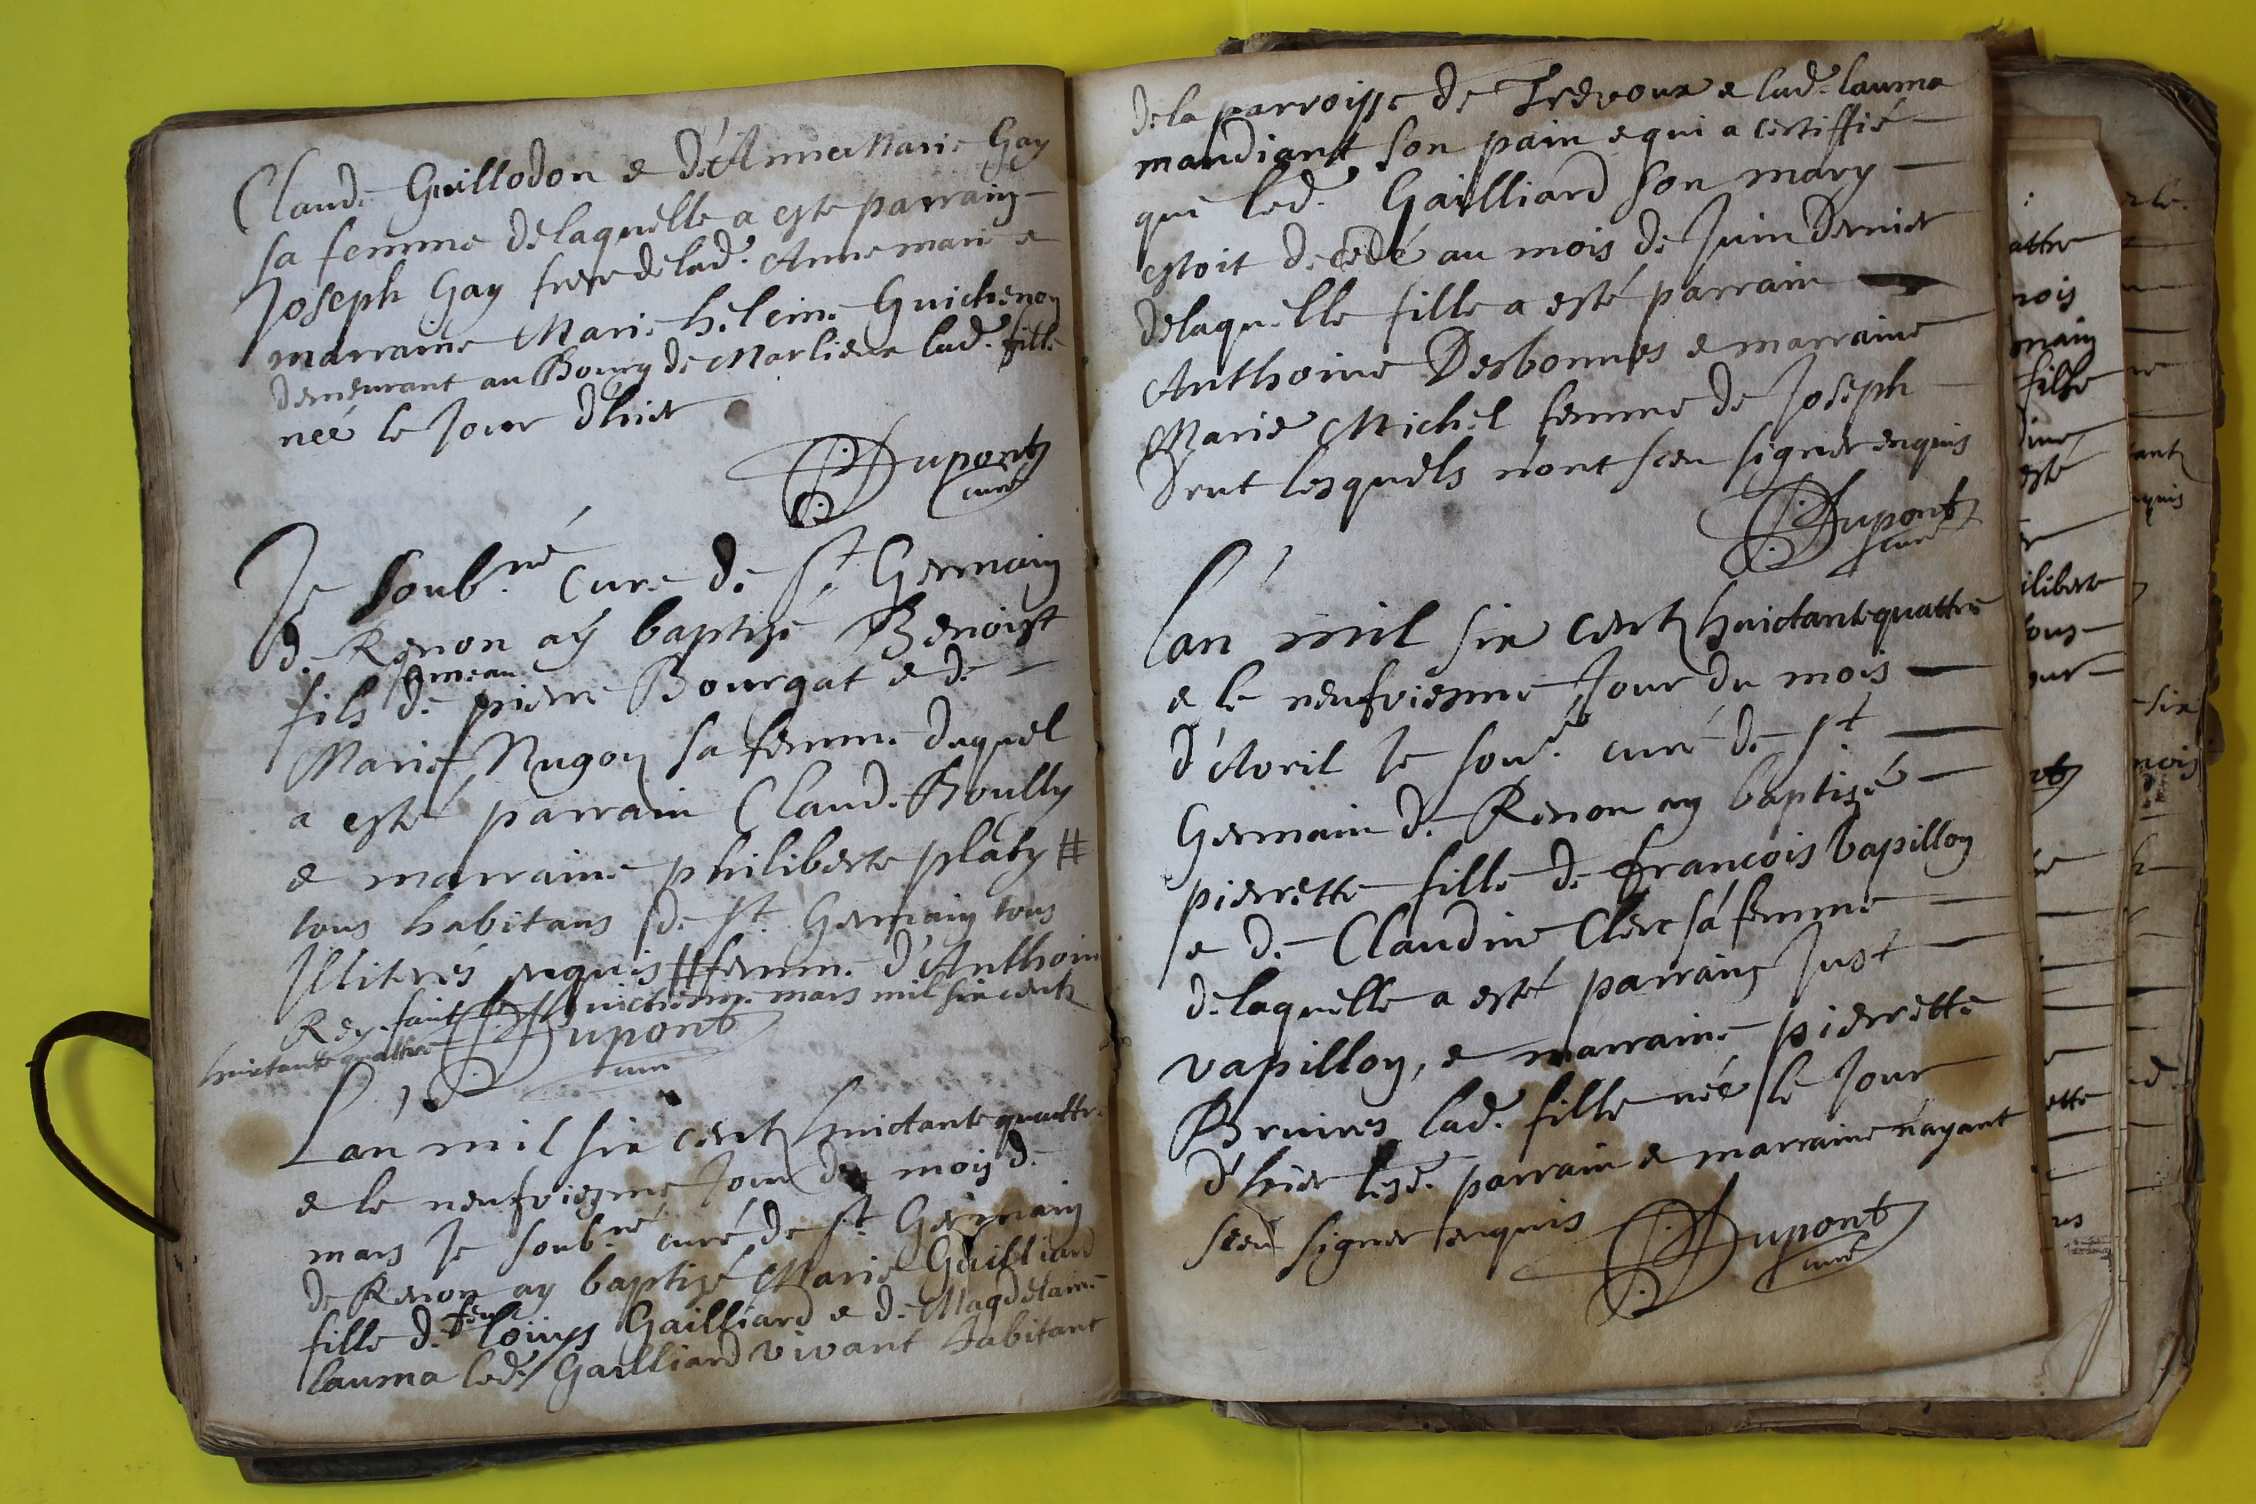 Claude Guillodon e d'Anne Marie Gay
sa femme delaquelle a esté parraing
Joseph Gay frere de lad. Anne marie e
marraine Marie heleine Guichenon
demeurant au Bourg de Marlieux lad. fille
née le Jour d'hier
Dupont
curé
Je soub.né curé de St Germain
de Renon aÿ baptizé Benoist
jumeau
fils de pierre Bourgat e de
Marie Nugon sa femme duquel
a esté parrain Claude Boully
e marraine philiberte platy #
tous habitans de St Germain tous
Illiterés enquis # femme d'Anthoine
Rey. fait le huictieme mars mil six cent
huictante quattre
Dupont
curé
L'an mil six cent huictante quattre
e le neufviesme Jour du mois de
mars Je soub.né curé de St Germain
de Renon ay baptizé Marie Gailliard
feu
fille de Louys Gailliard e de Magdelaine
Lauma led. Gailliard vivant habitant
de la parroisse de Trevoux e lad. Lauma
mandiant son pain e qui a certiffié
que led. Gailliard son mary
estoit decedé au mois de Juin dernier
delaquelle fille a esté parrain
Anthoine Desbonnes e marraine
Marie Michel femme de Joseph
lesquels n'ont sceu signer enquis
Dupont
curé
L'an mil six cent huictante quattre
e le neufviesme Jour du mois
d'Avril Je sou.né curé de St
Germain de Renon ay baptizé
pierrette fille de francois Vapillon
e de Claudine Clerc sa femme
delaquelle a esté parraing Just
vapillon, e marraine pierrette
Bruires lad. fille née le Jour
d'hier lesd. parrain e marraine n'ayant
sceu signer enquis
Dupont
curé